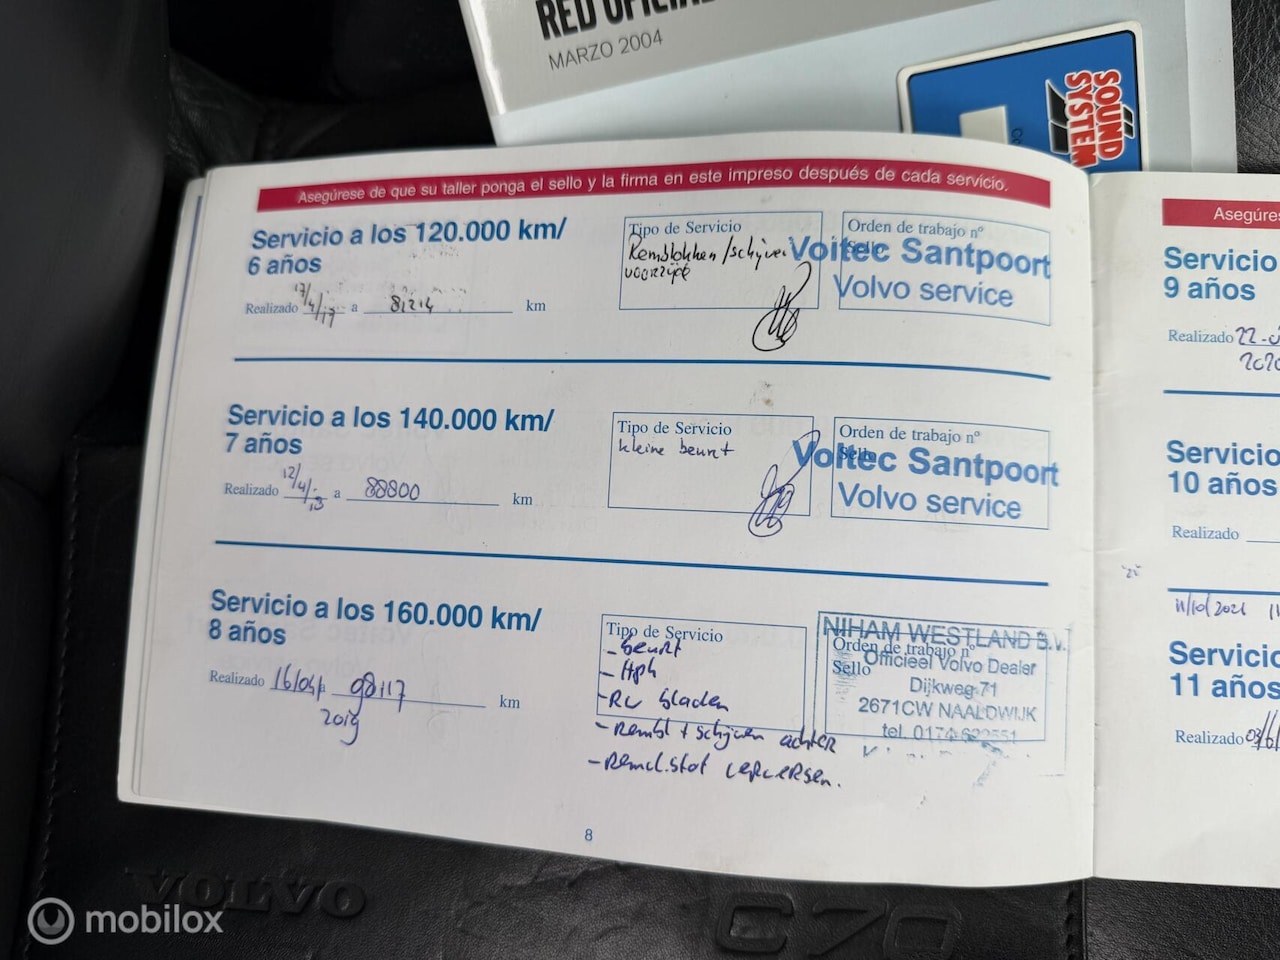 RED OFICIAL
MARZO 2004
SOUND
SYSTEM
Asegúrese de que su taller ponga el sello y la firma en este impreso después de cada servicio.
Servicio a los 120.000 km/
6 años
Realizado 17/4/17 a 81214 km
Tipo de Servicio
Remblokken/schijven
voorzijde
Orden de trabajo nº
Sello
Voltec Santpoort
Volvo service
Servicio a los 140.000 km/
7 años
Realizado 12/4/18 a 88800 km
Tipo de Servicio
kleine beurt
Orden de trabajo nº
Sello
Voltec Santpoort
Volvo service
Servicio a los 160.000 km/
8 años
Realizado 16/04 a 98117 km
2019
Tipo de Servicio
- beurt
- APK
- Rw bladen
- Rembl + schijven achter
- Remvl.stof verversen.
Orden de trabajo nº
Sello
NIHAM WESTLAND B.V.
Officieel Volvo Dealer
Dijkweg 71
2671CW NAALDWIJK
tel. 0174
8
Asegúres
Servicio
9 años
Realizado 22-
2020
Servicio
10 años
Realizado
11/10/2021
Servicio
11 años
Realizado
VOLVO
C70
mobilox